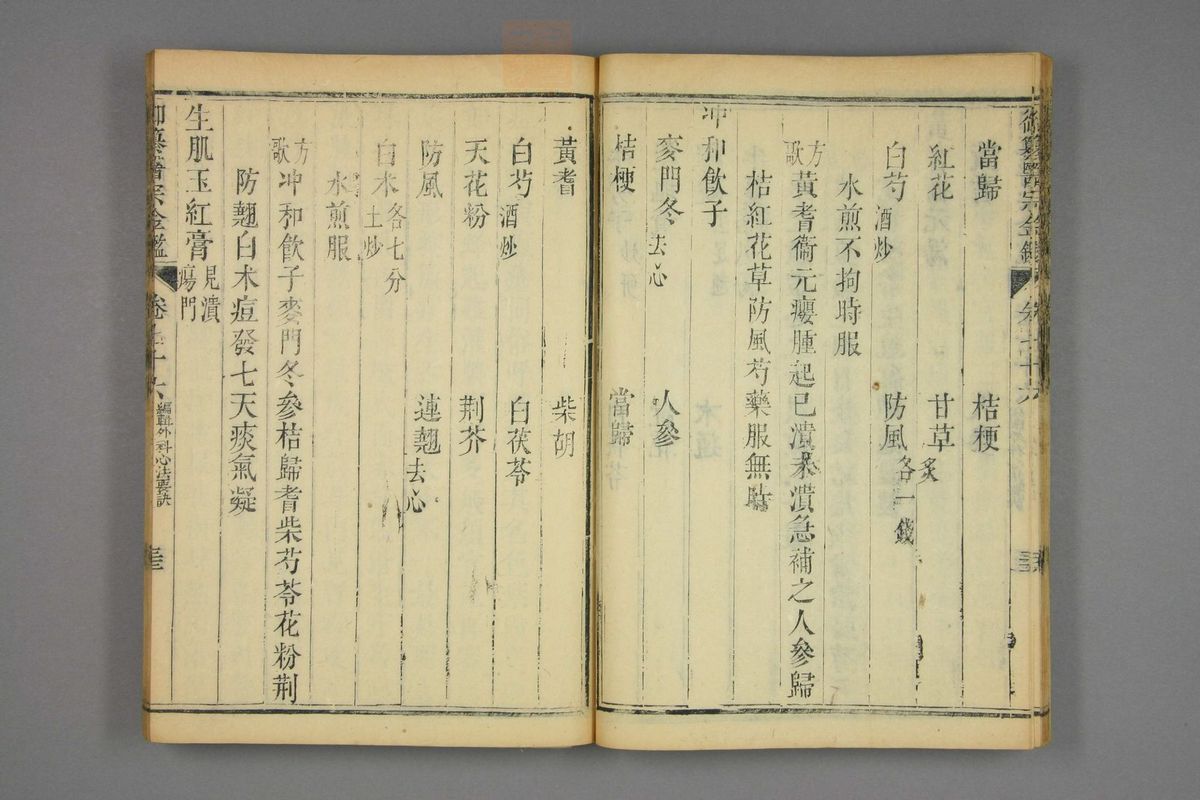 御纂醫宗金鑑 卷七十六
當歸 桔梗
紅花 甘草炙
白芍酒炒 防風各一錢
水煎不拘時服
方歌 黃耆衞元癭腫起已潰未潰急補之人參歸
桔紅花草防風芍藥服無時
冲和飲子
麥門冬去心 人參
桔梗 當歸
黃耆 柴胡
白芍酒炒 白茯苓
天花粉 荆芥
防風 連翹去心
白朮土炒 各七分
水煎服
方歌 冲和飲子麥門冬參桔歸耆柴芍苓花粉荆
防翹白朮痘發七天痰氣凝
生肌玉紅膏見潰瘍門
御纂醫宗金鑑 卷七十六 編輯外科心法要訣